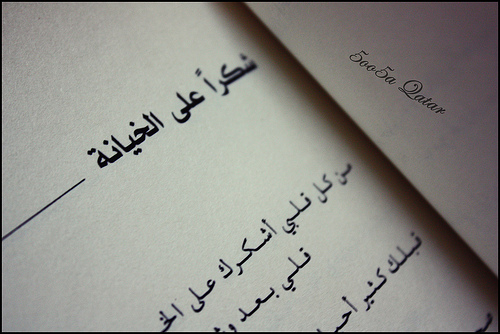 شكراً على الخيانة
من كل قلبي أشكرك على
قلبي بعد
قبلك كثير
5oo5a Qatar